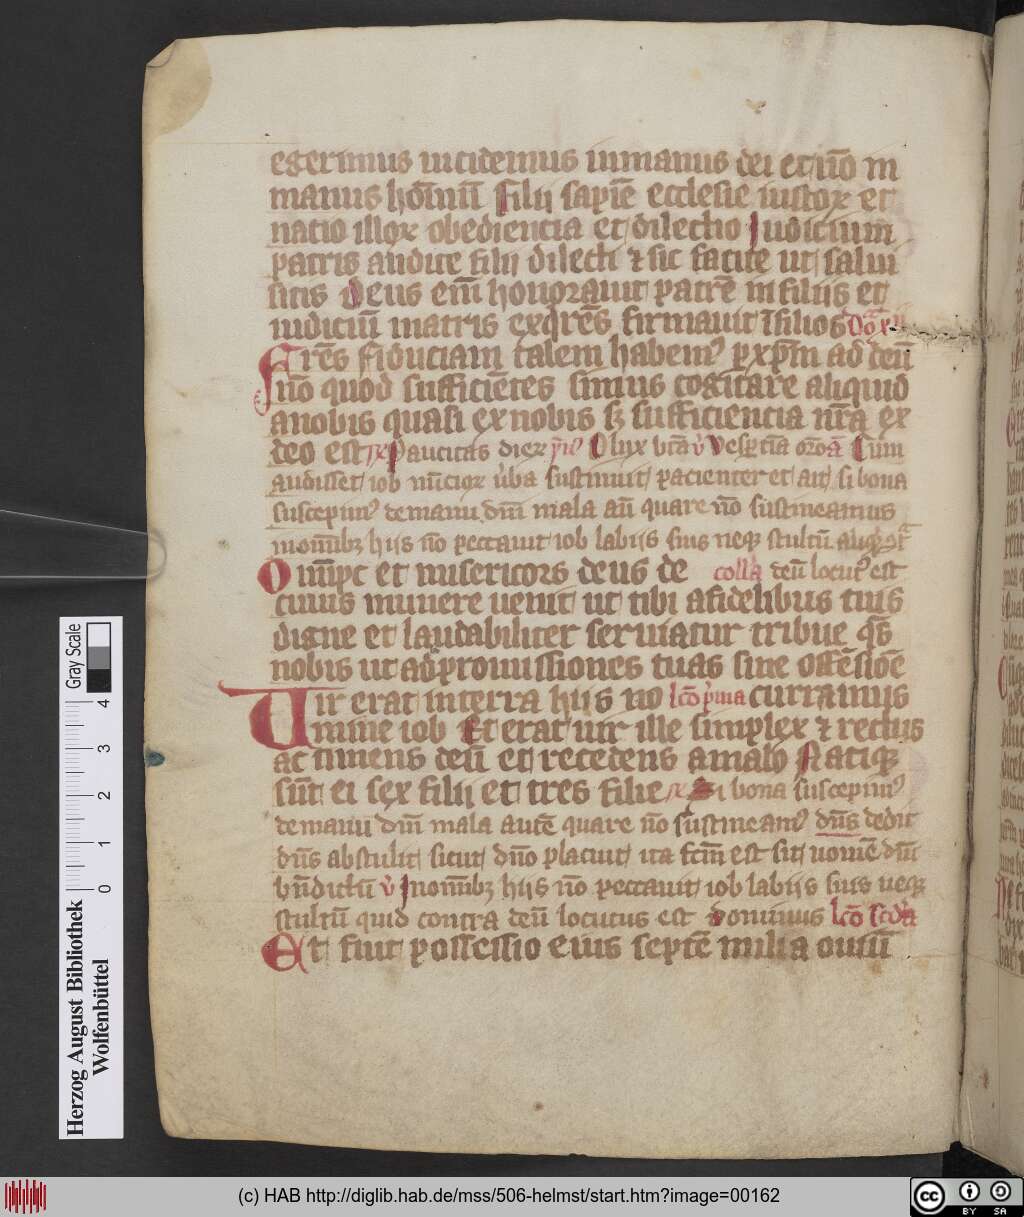 egerimus incidemus inmanus dei et nō in
manus hoīnū filii sapiē ecclesie iustoꝝ et
natio illoꝝ obediencia et dilectio Judicium
patris audite filii dilecti ⁊ sic facite ut salui
sitis Deus em̄ honorauit patrē in filiis et
iudiciū matris exqrēs firmauit ī filios Dō xii
Frēs fiduciam talem habemꝰ ꝑ xp̄m ad deū
nō quod sufficiētes simus cogitare aliquid
anobis quasi ex nobis sꝫ sufficiencia nr̄a ex
deo est Paucitas dieꝝ O lux btā Vesꝑtīa orōā Cum
audisset iob nūcioꝝ ūba sustinuit pacienter et ait si bona
suscepimꝰ demanu dn̄i mala aūt quare nō sustineamus
inomībꝫ hiis nō peccauit iob labiis suis neqꝫ stultū aliqd
Omīpc et misericors deus de collā deū locutꝰ est
cuius munere uenit ut tibi afidelibus tuis
digne et laudabiliter seruiatur tribue qs̄
nobis ut ad promissiones tuas sine offēsiōe
Vir erat interra hiis no lcō p̄ma curramus
mine iob Et erat uir ille simplex ⁊ rectus
ac timens deū et recedens amalo Natiqꝫ
sūt ei sex filii et tres filie Si bona suscepimꝰ
demanu dn̄i mala autē quare nō sustineamꝰ dn̄s dedit
dn̄s abstulit sicut dn̄o placuit ita fcm̄ est sit nomē dn̄i
bn̄dictū Inomībꝫ hiis nō peccauit iob labiis suis neqꝫ
stultū quid contra deū locutus est dominus lcō scd̄a
Et fuit possessio eius septē milia ouiū
Gray Scale
0 1 2 3 4
Herzog August Bibliothek
Wolfenbüttel
(c) HAB http://diglib.hab.de/mss/506-helmst/start.htm?image=00162
cc BY SA